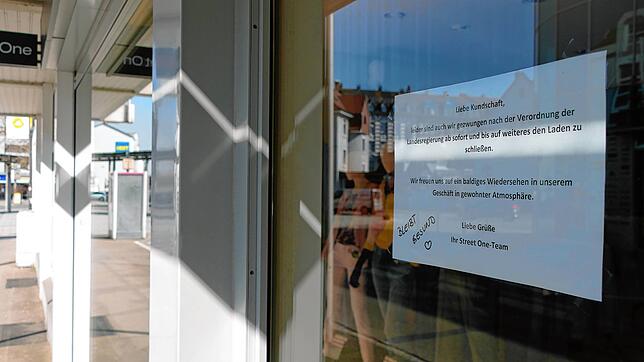 One
t One
Liebe Kundschaft,
leider sind auch wir gezwungen nach der Verordnung der
Landesregierung ab sofort und bis auf weiteres den Laden zu
schließen.
Wir freuen uns auf ein baldiges Wiedersehen in unserem
Geschäft in gewohnter Atmosphäre.
Liebe Grüße
Ihr Street One-Team
BLEIBT
GESUND